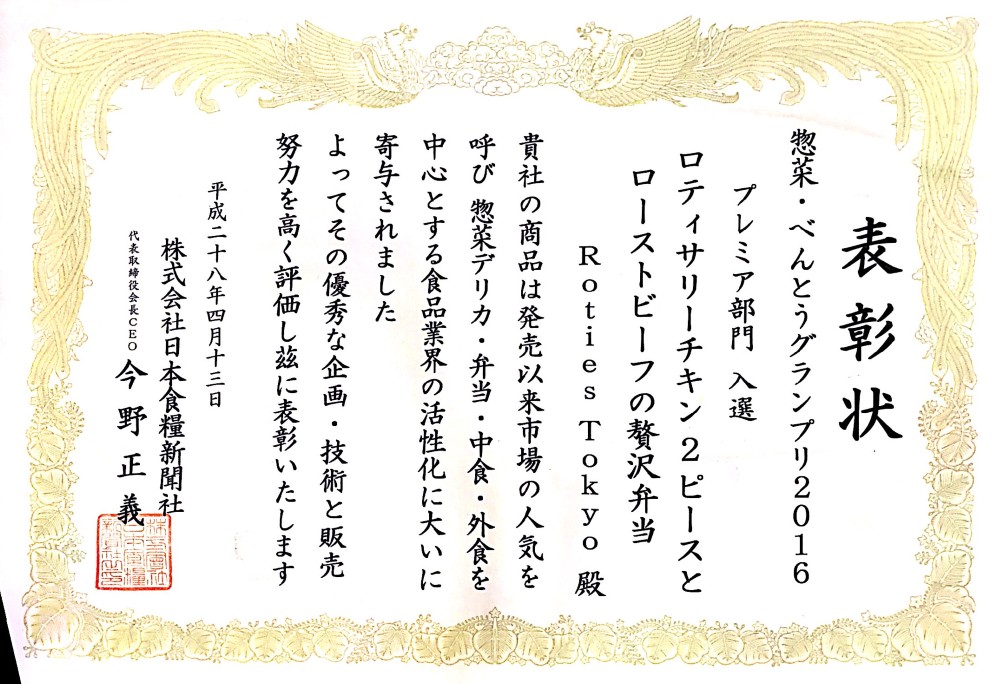 表彰状
惣菜・べんとうグランプリ2016
プレミア部門 入選
ロティサリーチキン2ピースと
ローストビーフの贅沢弁当
Roties Tokyo 殿
貴社の商品は発売以来市場の人気を
呼び 惣菜デリカ・弁当・中食・外食を
中心とする食品業界の活性化に大いに
寄与されました
よってその優秀な企画・技術と販売
努力を高く評価し茲に表彰いたします
平成二十八年四月十三日
株式会社日本食糧新聞社
代表取締役会長CEO 今野正義